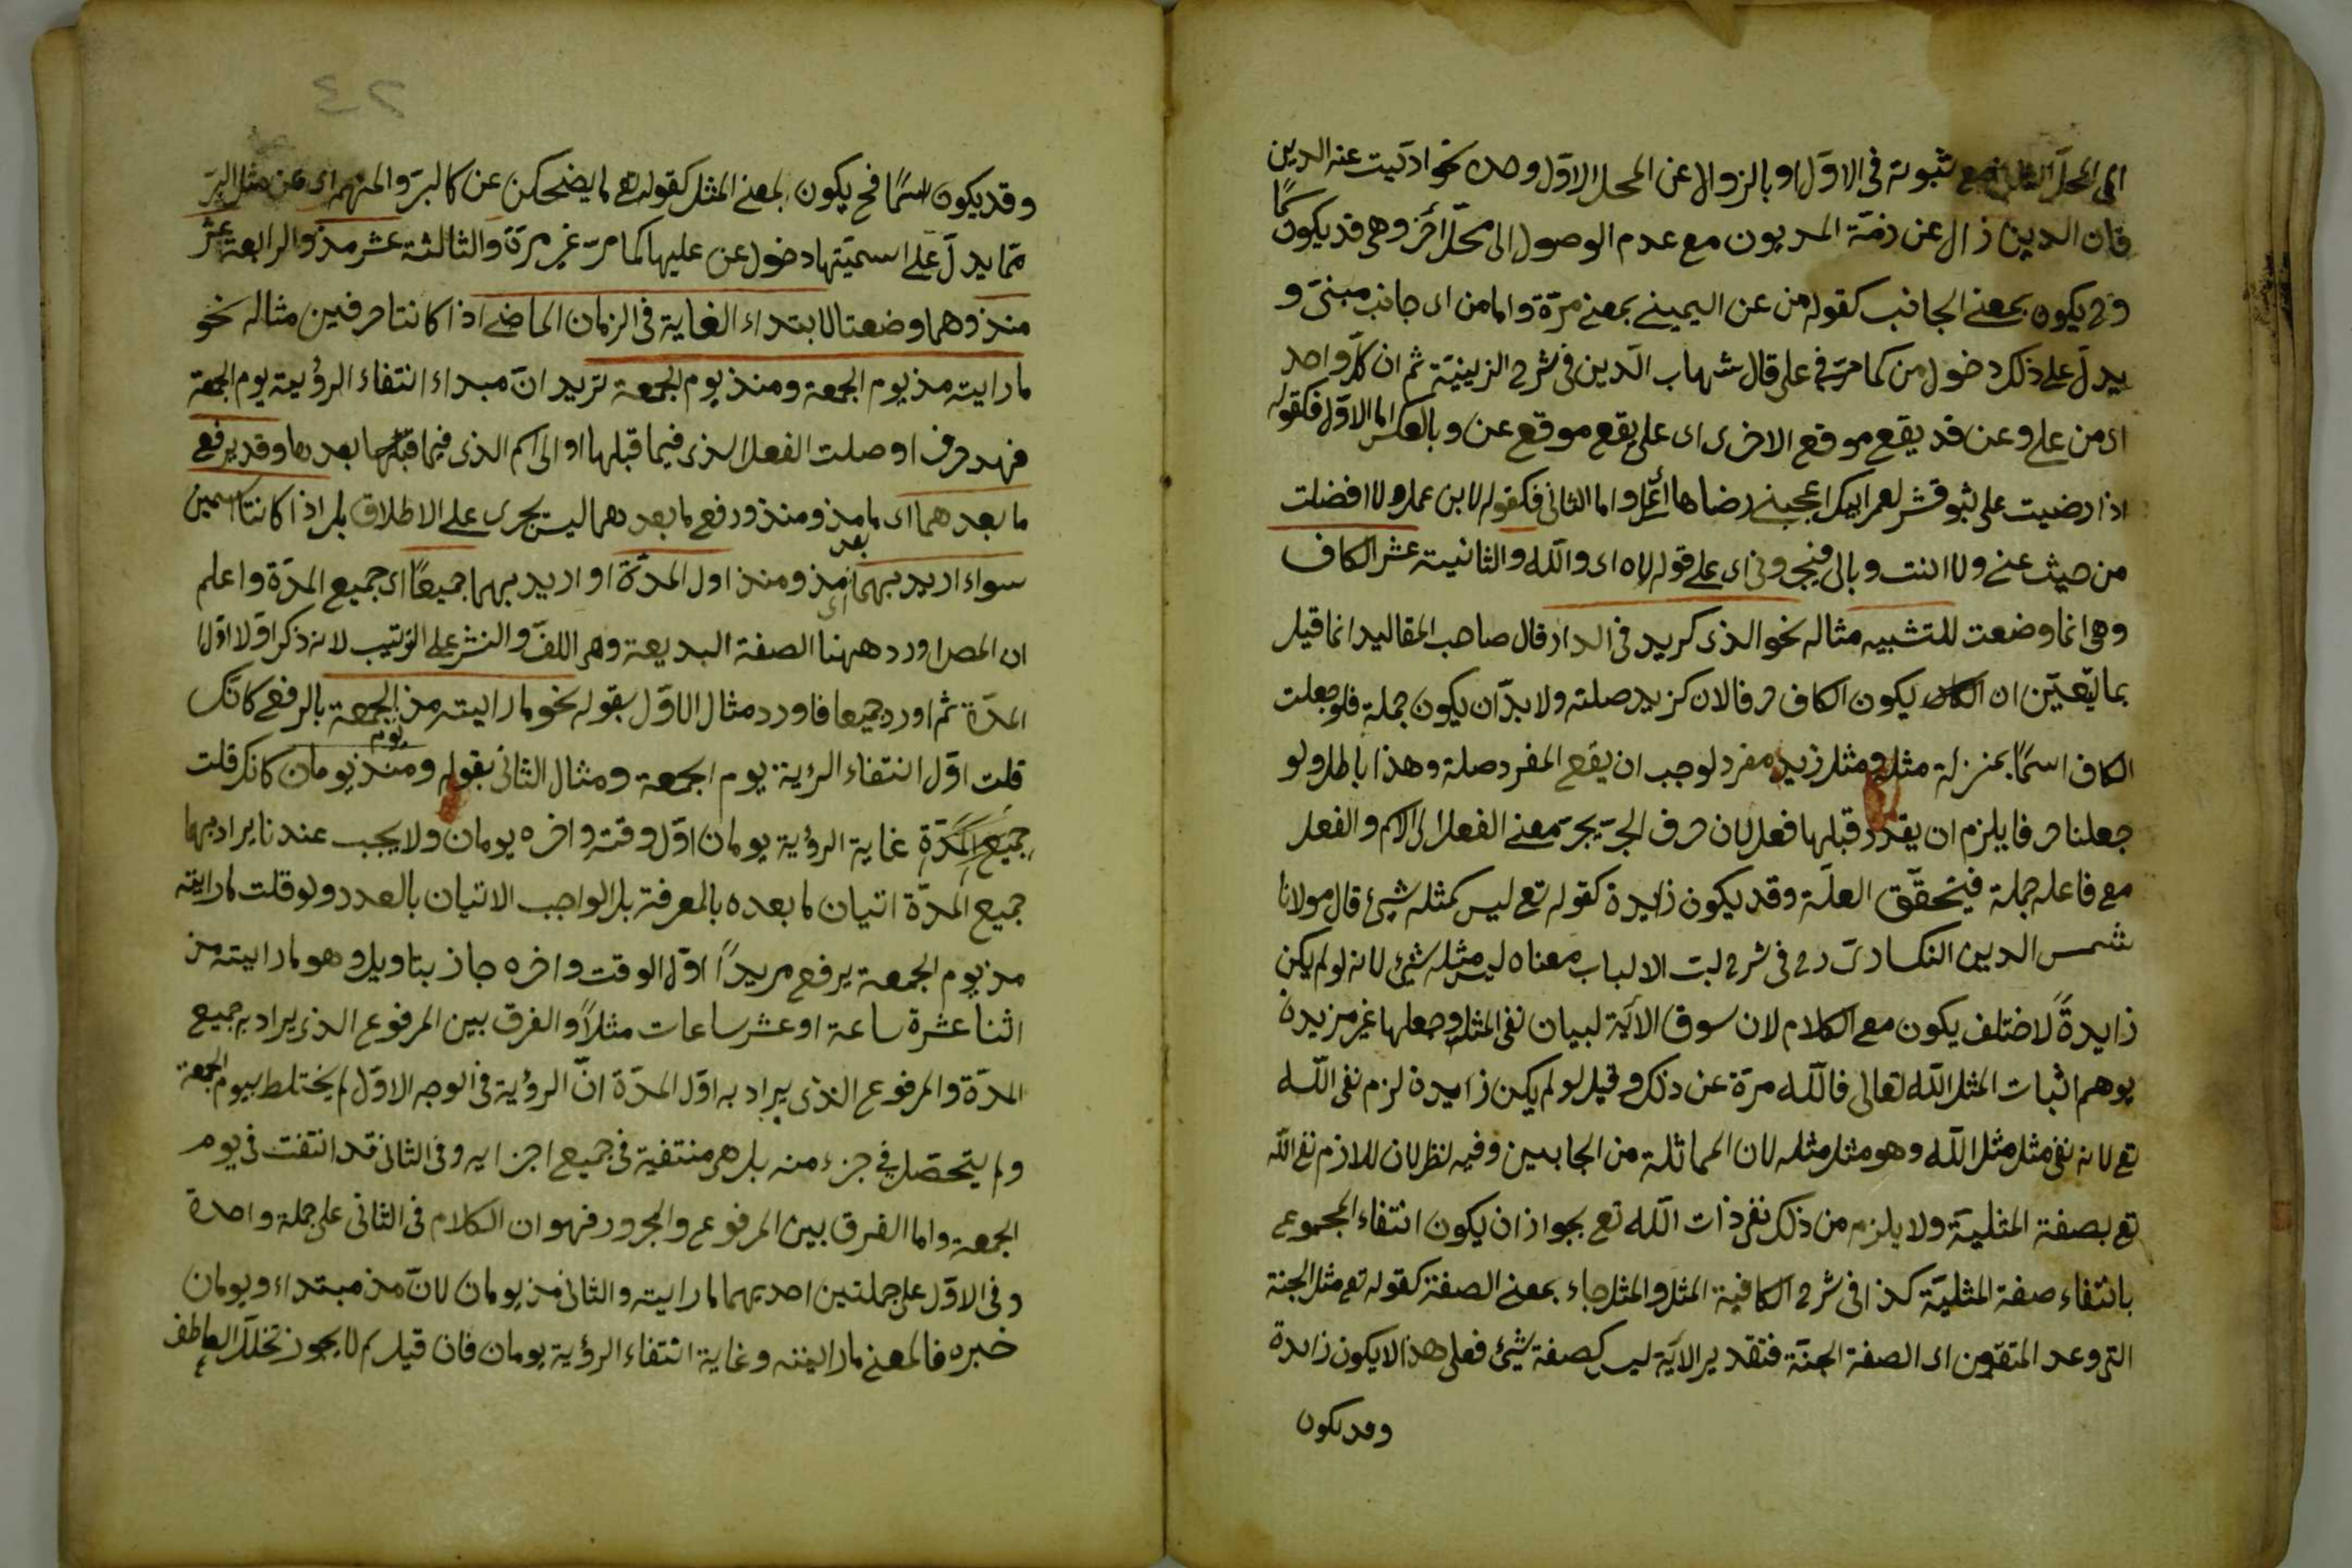 الى المحل الثانى مع ثبوته فى الاوّل او بالزوال عن المحل الاوّل وحده نحو ادّيت عنه الدين
فان الدين زال عن ذمّة المديون مع عدم الوصول الى محلّ أخر وهى قد يكون اسمًا
وح يكون بمعنى الجانب كقوله من عن اليمينى بمعنى مرّة وامامن اى جانب مبنىّ و
يدلّ على ذلك دخول من كما مرّ فى على قال شهاب الدّين فى شرح الزينيّة ثم ان كلّ واحد
اى من على وعن قد يقع موقع الاخرى اى على يقع موقع عن وبالعكس اما الاوّل فكقوله
اذا رضيت على بنو قشر لعمر ابيك اعجبنى رضاها واما الثانى فكقوله لابن عمك لا افضلت
من حيث عنى ولا انت وبالى فيجى وفى اى على قوله لاه اى والله والثانية عشر الكاف
وهى انما وضعت للتشبيه مثاله نحو الذى كزيد فى الدار قال صاحب المقاليد انما قيل
بما يتعيّن ان يكون الكاف حرفا لان كزيد صلته ولا بدّ ان يكون جملة فلو جعلت
الكاف اسمًا بمنزلة مثل ومثل زيد مفرد لوجب ان يقع المفرد صلة وهذا باطل ولو
جعلنا حرفا يلزم ان يقدّر قبلها فعل لان حرف الجرّ يجرّ معنى الفعل الى الاسم والفعل
مع فاعله جملة فيتحقّق العلّة وقد يكون زايدة كقوله تع ليس كمثله شيئ قال مولانا
شمس الدين النكسارىّ رح فى شرح لبّ الالباب معناه ليس مثله شيئ لانه لو لم يكن
زايدةً لاختلف يكون مع الكلام لان سوق الأية لبيان نفى المثل وجعلها غير مزيدة
يوهم اثبات المثل الله تعالى فالله مرّة عن ذلك وقيل لو لم يكن زايدة لزم نفى الله
تع لانه نفى مثل مثل الله وهو مثل مثله لان المماثلة من الجانبين وفيه نظر لان اللازم نفى الله
تع بصفة المثليّة ولا يلزم من ذلك نفى ذات الله تع بجواز ان يكون انتفاء المجموع
بانتفاء صفة المثليّة كذا فى شرح الكافية المثل والمثل جاء بمعنى الصفة كقوله تع مثل الجنة
التى وعد المتقون اى الصفة الجنّة فتقدير الأية ليس كصفة شيئ فعلى هذا لا يكون زايدة
وقد يكون
٢٤
وقد يكون اسمًا فح يكون بمعنى المثل كقوله تع ما يضحكن عن كالبرّ والمنهم اى عن مثل البرّ
ممّا يدلّ على اسميّتها دخول عن عليها كما مرّ غير مرّة والثالثة عشر مذ والرابعة عشر
منذ وهما وضعتا لابتداء الغاية فى الزمان الماضى اذا كانتا حرفين مثاله نحو
ما رايته مذ يوم الجمعة ومنذ يوم الجمعة تريد انّ مبداء انتفاء الرؤية يوم الجمعة
فهذ حرف اوصلت الفعل الذى فيما قبلها او الى اسم الذى فيما بعدها وقد يرفع
ما بعدهما اى ما مذ ومنذ ورفع ما بعدهما ليس يجرى على الاطلاق بل اذا كانتا اسمين
سواء اريد بهما اى بعد مذ ومنذ اول المدّة او اريد بهما جميعًا اى جميع المدّة واعلم
ان المص اورد ههنا الصفة البديعة وهى اللفّ والنشر على الترتيب لانه ذكر اوّلا اوّل
المدّة ثم اورد جميعا فاورد مثال الاوّل بقوله نحو ما رايته مذ يوم الجمعة بالرفع كانّك
قلت اوّل انتفاء الرؤية يوم الجمعة ومثال الثانى بقوله ومنذ يومان كانك قلت
جميع المدّة غاية الرؤية يومان اوّل وقته واخره يومان ولا يجب عندنا يراد بهما
جميع المدّة اتيان ما بعده بالمعرفة بل الواجب الاتيان بالعدد ولو قلت ما رايته
مذ يوم الجمعة يرفع مريدًا اوّل الوقت واخره جاز بتاويل وهو ما رايته من
اثنا عشرة ساعة او عشر ساعات مثلًا والفرق بين المرفوع الذى يراد به جميع
المدّة والمرفوع الذى يراد به اوّل المدّة انّ الرؤية فى الوجه الاوّل لم يختلط بيوم الجمعة
ولم يتحصّل فى جزء منه بل هى منتفية فى جميع اجزايه وفى الثانى قد انتفت فى يوم
الجمعة واما الفرق بين المرفوع والمجرور فهو ان الكلام فى الثانى على جملة واحدة
وفى الاوّل على جملتين احديهما ما رايته والثانى مذ يومان لانّ مذ مبتداء ويومان
خبره فالمعنى ما رايته وغاية انتفاء الرؤية يومان فان قيل لم لا يجوز تخلّل العاطف